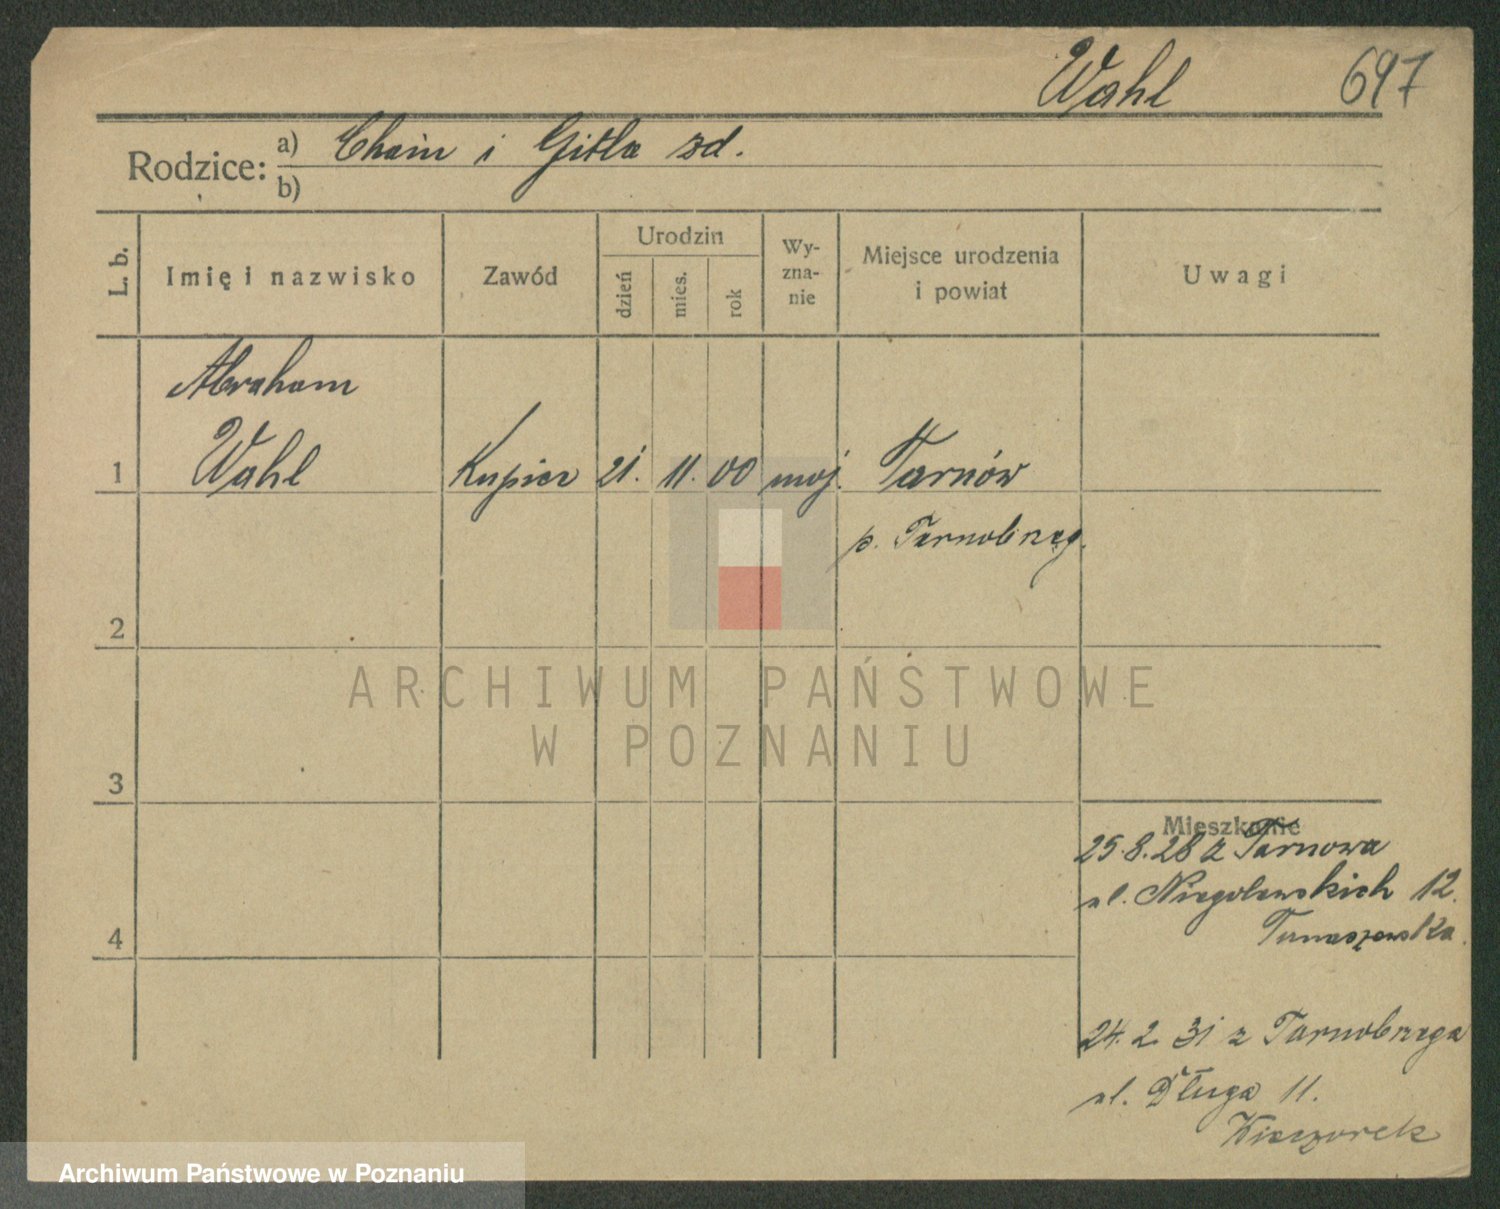 Wahl 697
Rodzice: a) Chaim i Gitla zd.
b)
L. b.
Imię i nazwisko
Zawód
Urodzin
dzień
mies.
rok
Wy-
zna-
nie
Miejsce urodzenia
i powiat
Uwagi
Abraham
1 Wahl Kupiec 21. 11. 00 moj. Tarnów
p. Tarnobrzeg.
2
3
4
Mieszkanie
25.8.28 z Tarnowa
ul. Niegolewskich 12.
Tomaszewska.
24.2.31 z Tarnobrzega
ul. Długa 11.
Wieczorek
ARCHIWUM PAŃSTWOWE
W POZNANIU
Archiwum Państwowe w Poznaniu